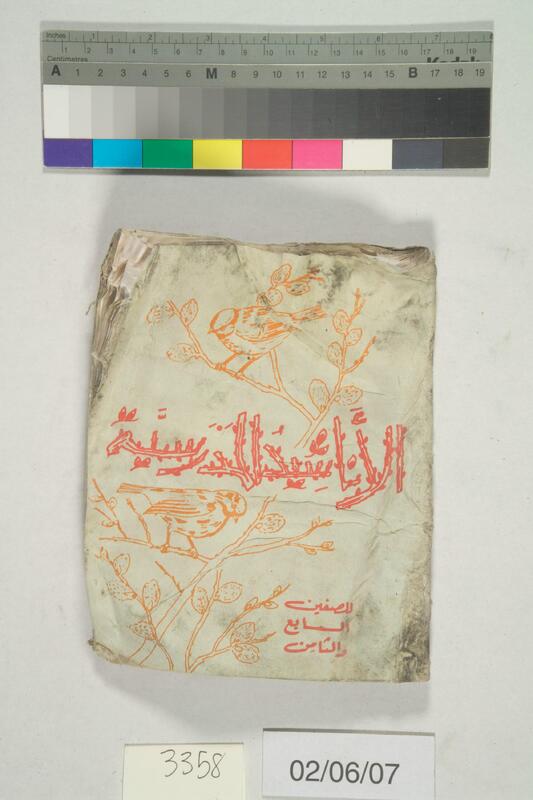 Inches 1 2 3 4 5 6 7 8
Centimetres 1 2 3 4 5 6 7 8 9 10 11 12 13 14 15 16 17 18 19
Kodak
A 1 2 3 4 5 6 M 8 9 10 11 12 13 14 15 B 17 18 19
الأناشيد المدرسية
للصفين
السابع
والثامن
3358
02/06/07